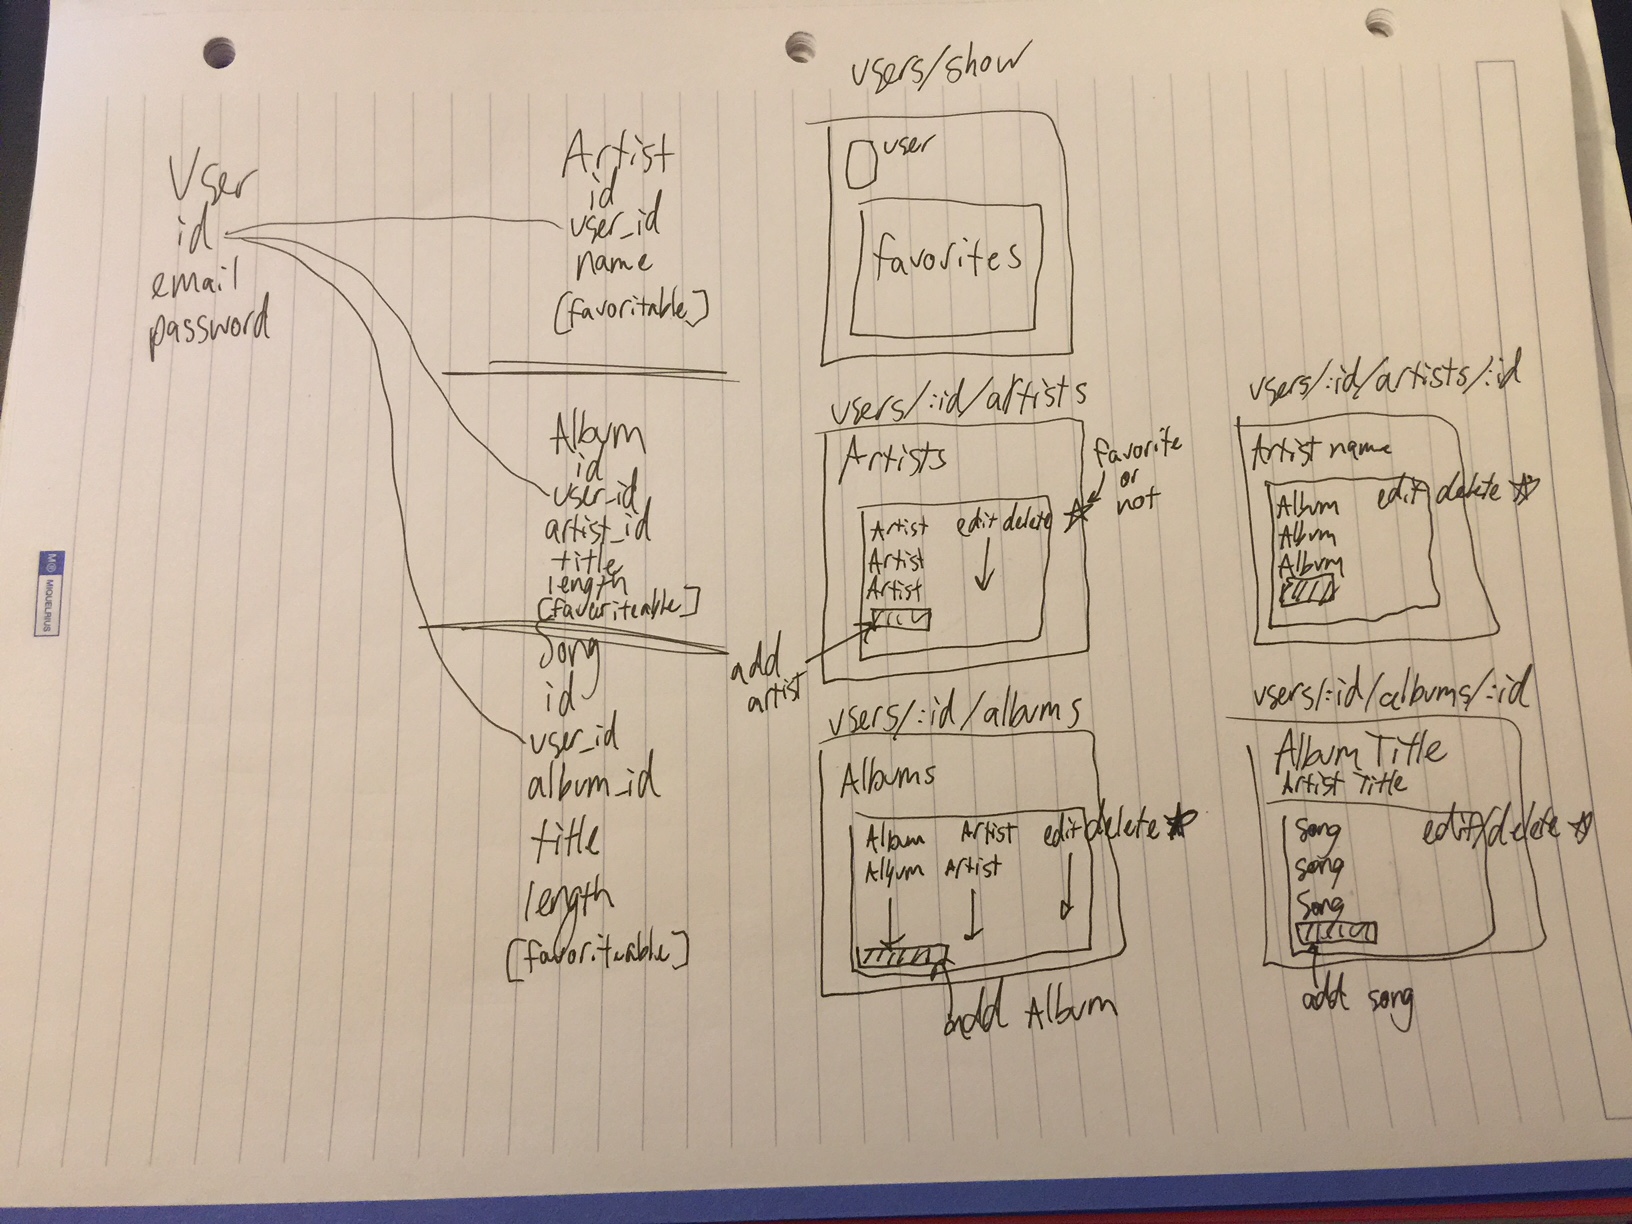 MIQUELRIUS
User
id
email
password
Artist
id
user_id
name
[favoritable]
Album
id
user_id
artist_id
title
length
[favoriteable]
Song
id
user_id
album_id
title
length
[favoritable]
users/show
user
favorites
users/:id/artists
Artists
Artist edit delete
Artist
Artist
favorite
or
not
add
artist
users/:id/albums
Albums
Album Artist edit delete
Album Artist
add Album
users/:id/artists/:id
Artist name
Album edit delete
Album
Album
users/:id/albums/:id
Album Title
Artist Title
song edit/delete
song
song
add song